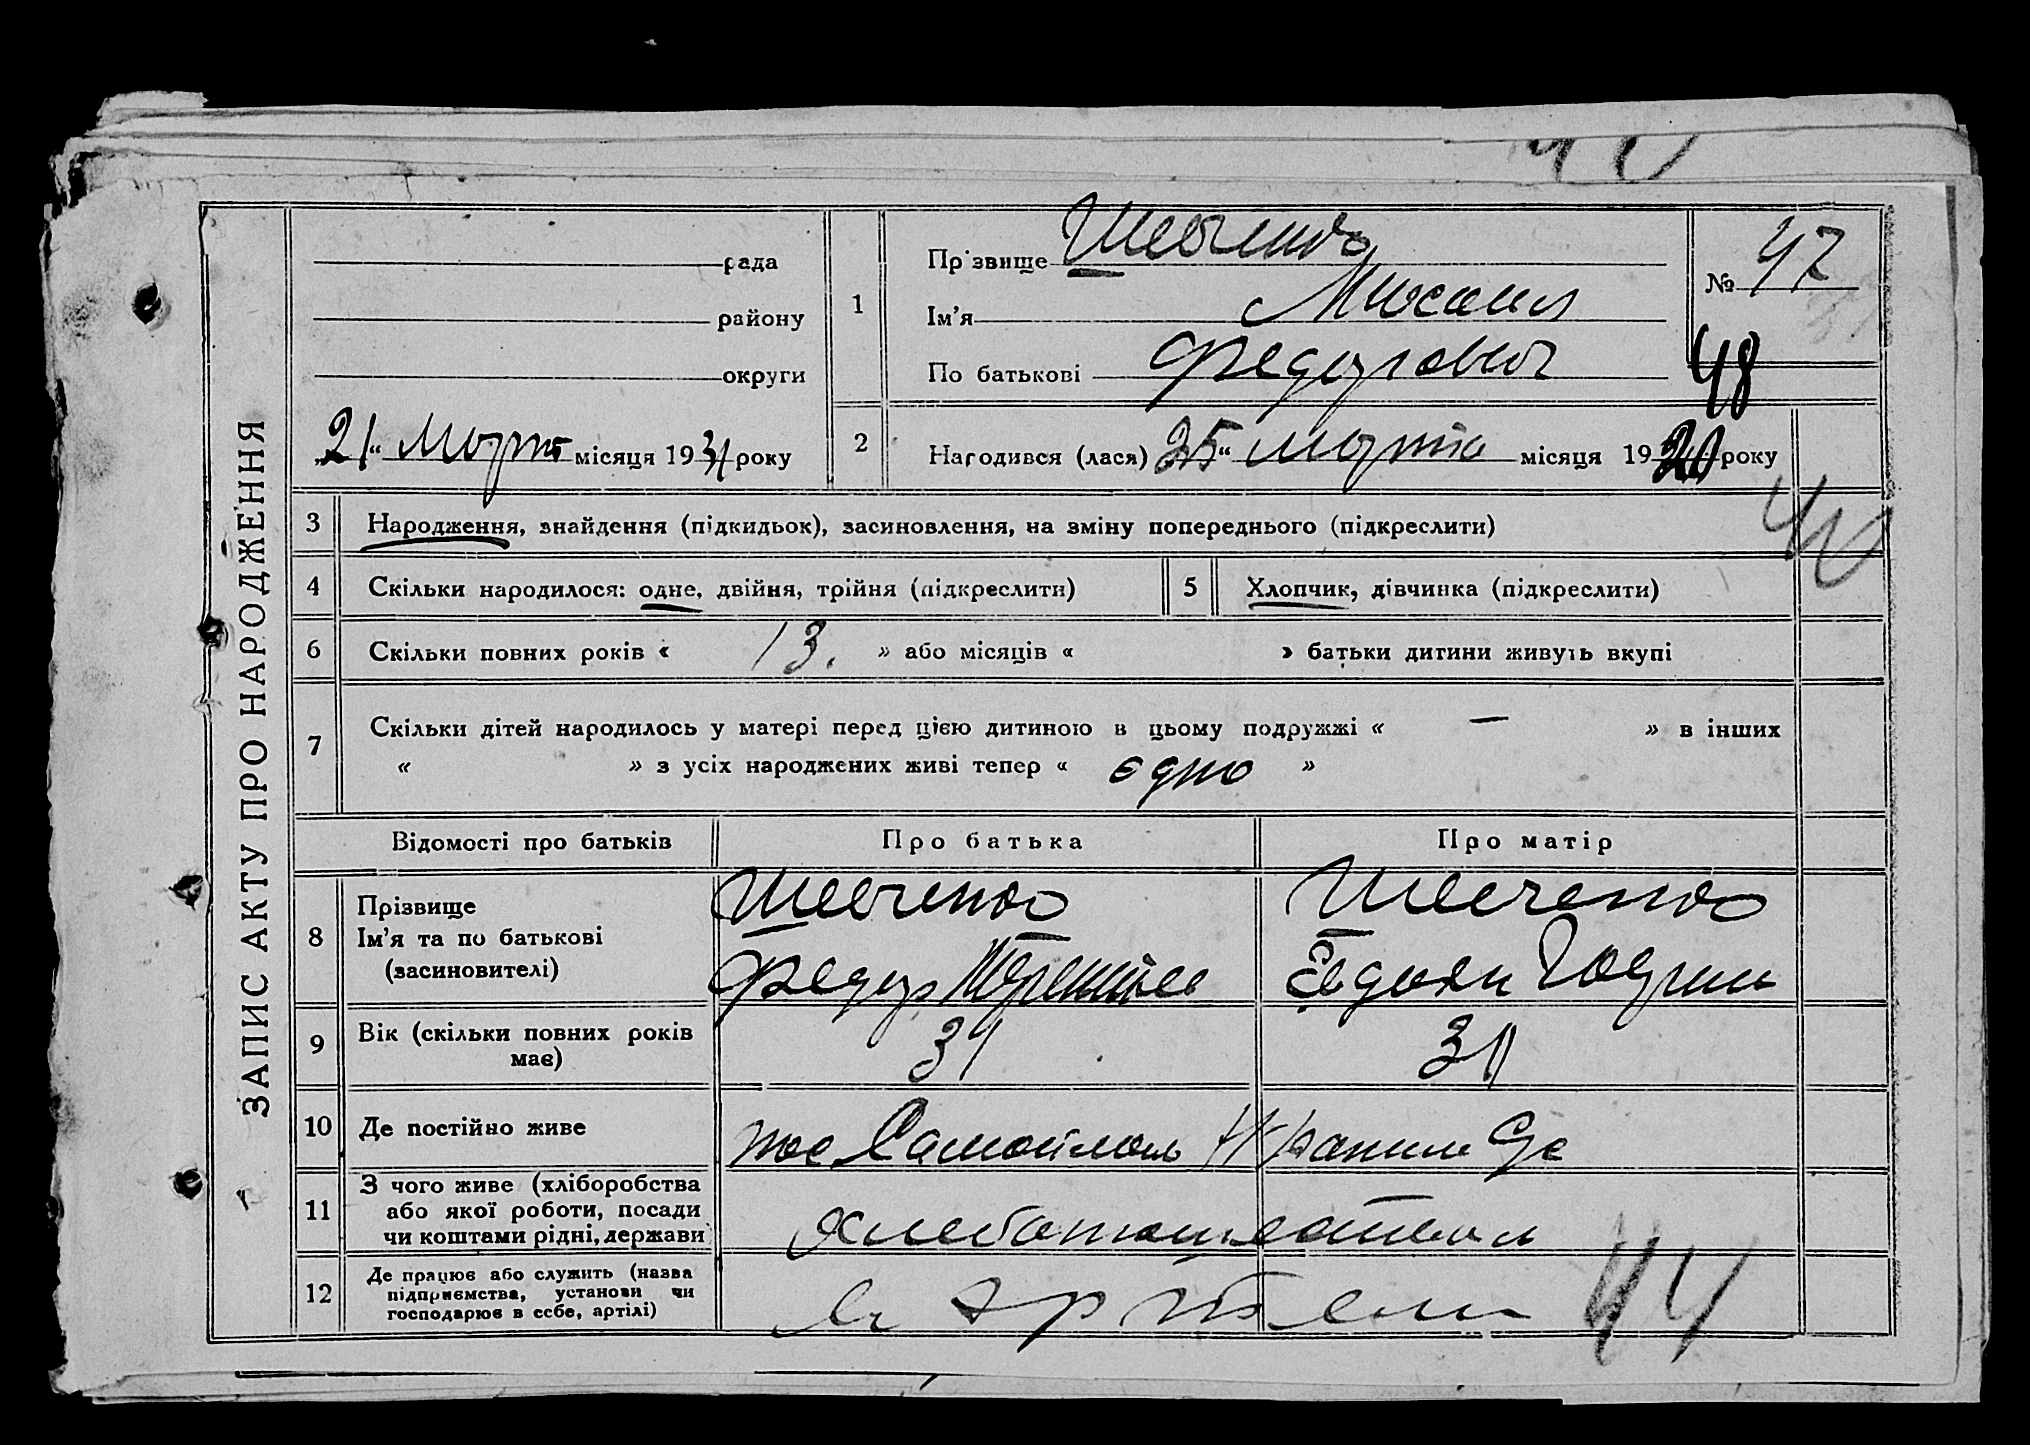 ЗАПИС АКТУ ПРО НАРОДЖЕННЯ
рада
району
округи
„21“ Марта місяця 1931 року
1
Прізвище Шевченко
Ім’я Михаил
По батькові Федорович
№ 47
48
2
Народився (лася) 25“ марта місяця 19 року
40
3 Народження, знайдення (підкидьок), засиновлення, на зміну попереднього (підкреслити)
4 Скільки народилося: одне, двійня, трійня (підкреслити)
5 Хлопчик, дівчинка (підкреслити)
6 Скільки повних років « 13. » або місяців « » батьки дитини живуть вкупі
7 Скільки дітей народилось у матері перед цією дитиною в цьому подружжі « — » в інших
« » з усіх народжених живі тепер « едно »
Відомості про батьків Про батька Про матір
8 Прізвище
Ім’я та по батькові
(засиновителі)
Шевченко
Федор
Шевченко
9 Вік (скільки повних років
має)
31
10 Де постійно живе
пос
11 З чого живе (хліборобства
або якої роботи, посади
чи коштами рідні, держави
12 Де працює або служить (назва
підприємства, установи чи
господарює в себе, артілі)
в артели
44